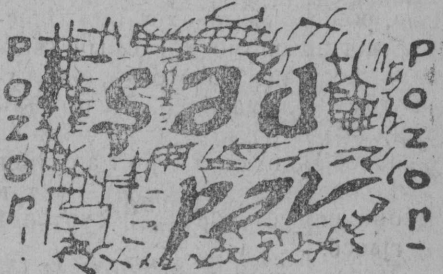 Pozor!
şəd
pəv
Pozor!